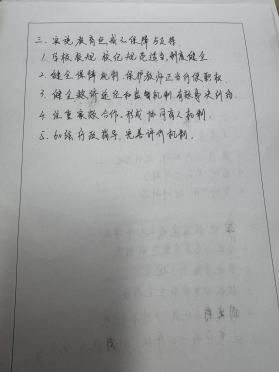 三、实施教育惩戒的保障与支持
1. 学校教规、校纪规范适当,制度健全.
2. 健全保障机制,保护教师正当行使职权
3. 健全救济途径和监督机制,有效解决纠纷.
4. 注重家校合作,形成协同育人机制.
5. 加强行政指导,完善评价机制.